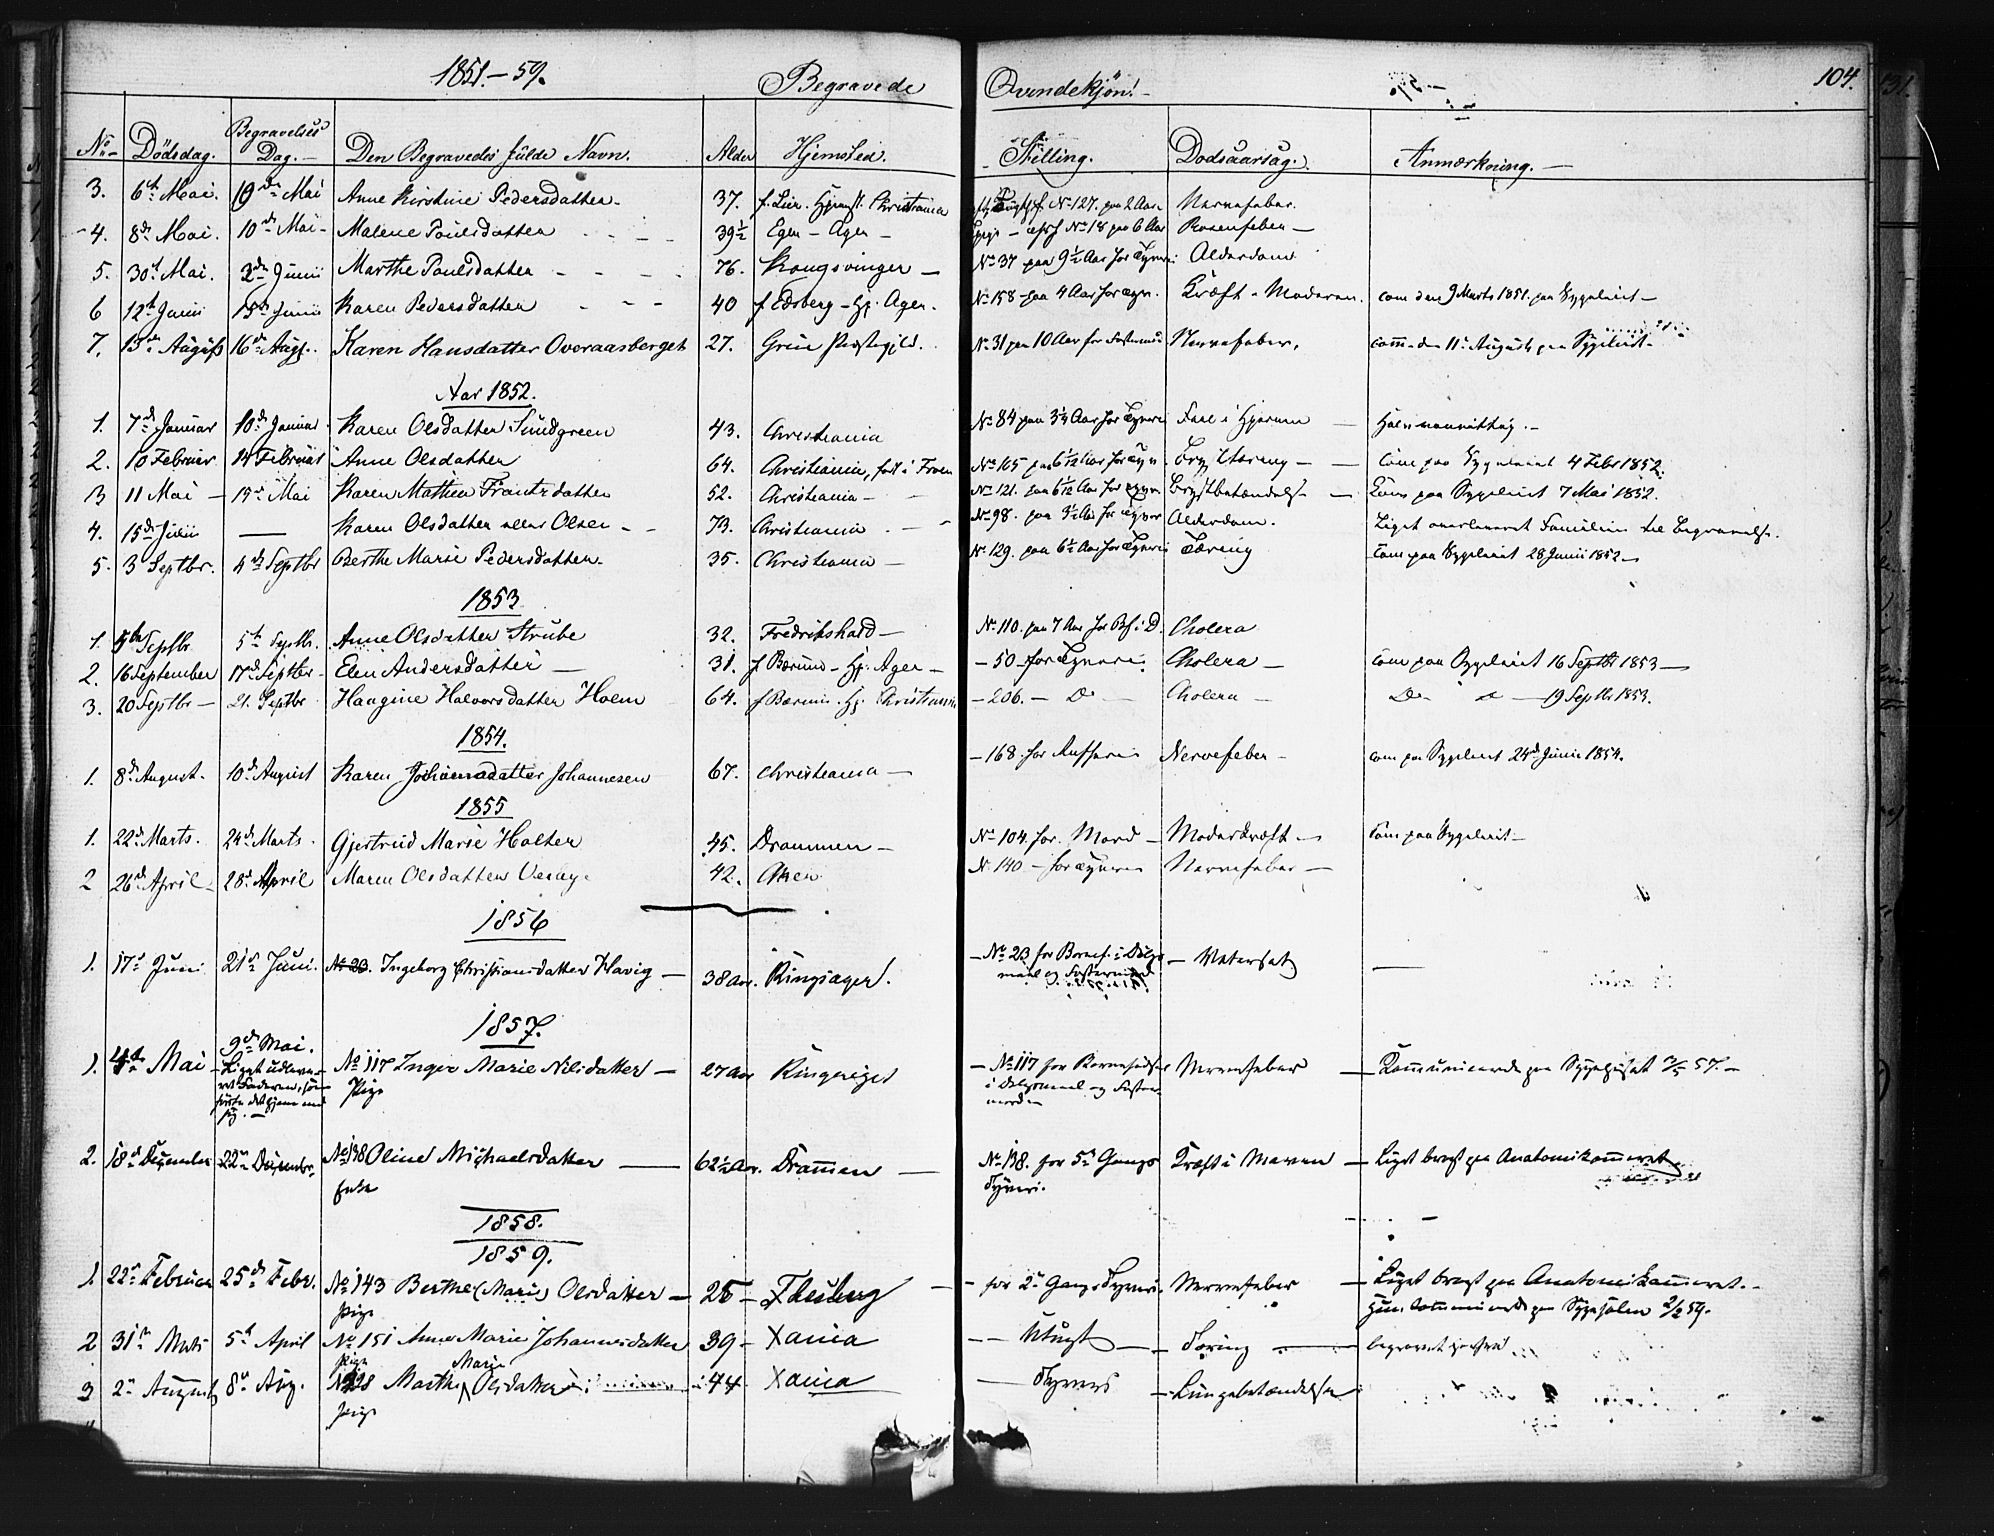 1851.-59. Begravede Qvindekjön. 104.
No Dödsdag. Begravelses Dag. Den Begravedes fulde Navn. Alder Hjemsted. Stilling. Dodsaarsag. Anmærkning.
3. 6te Mai. 10de Mai Anne Kirstine Pedersdatter 37. f. Lier. Hjemst. Christiania No 127. paa 2 Aar Nervefeber.
4. 8de Mai. 10de Mai Malene Poulsdatter 39½ Eger - Ager - No 18 paa 6 Aar Rosenfeber
5. 30te Mai. 2den Junii Marthe Poulsdatter 76. Kongsvinger No 37 paa 9½ Aar for Tyveri Alderdom
6 12te Junii 15de Junii Karen Pedersdatter 40 f. Edsberg - Hj. Ager. No 158 paa 4 Aar for Tyv. Kræft i Moderen. com den 9 Marts 1851. paa Sygeleiet
7. 13de August 16de Augs. Karen Hansdatter Overaasberget 27. Grue Præstegjld. No 31 paa 10 Aar for Fostermord Nervefeber. com. den 11te August paa Sygeleiet
Aar 1852.
1. 7de Januar 10de Januar Karen Olsdatter Sundgreen 43. Christiania No 84 paa 3¼ Aar for Tyveri Feil i Hjernen
2. 10 Februar 14 Februar Anne Olsdatter 64. Christiania, født i Froen No 165 paa 6 1/12 Aar for Tyv. Brysttæring Com paa Sygeleiet 4 Febr 1852.
3 11 Mai 15de Mai Karen Mathea Frantzdatter 52. Christiania No 121. paa 6 1/12 Aar for Tyveri Brystbetændelse Com paa Sygeleiet 7 Mai 1852.
4. 15de Juni Karen Olsdatter eller Olsen 73. Christiania No 98. paa 3½ Aar for Tyveri Alderdom. Liget overleveret Familien til Begravelse.
5. 3 Septbr. 4de Septbr Berthe Marie Pedersdatter 35. Christiania No 129. paa 6½ Aar for Tyveri Tæring Com paa Sygeleiet 28 Junii 1852
1853
1. 4de Septbr 5te Septbr. Anne Olsdatter Strube 32. Fredrikshald No 110. paa 7 Aar for Bf. i D. Cholera
2. 16 September 17de Septbr Elen Andersdatter 31. f. Bærum - Hj. Ager - 50 for Tyveri Cholera Com paa Sygeleiet 16 Septbr 1853
3. 20 Septbr 21. Septbr Haagine Halvorsdatter Holm 64. f. Bærum. Hj. Christiania - 206. - Do Cholera Do do 19 Septbr 1853.
1854.
1. 8de August. 10de August Karen Johannsdatter Johannesen 67. Christiania - 168. for Nervefeber com paa Sygeleiet 24de Junii 1854.
1855
1. 22de Marts. 24de Marts. Gjertrud Marie Holter 45. Drammen No 104. for Mord Moderkræft Com paa Sygeleiet
2 26de April 28de April Maren Olsdatter 42. Aker No 140 - for Tyveri Nervefeber
1856
1. 17de Juni 21de Juni. No 23. Ingeborg Christiansdatter Havig 38 Aar. Ringsager. No 23 for Barnef. i Dølgs
maal og Fostermord Vatersot
1857.
1. 4de Mai 9de Mai. No 117 Inger Marie Nilsdatter 27 Aar Ringeriget No 117 for Barnefødsel Nervefeber Kommunicerede paa Sygehuset 2/5 57.
Liget udleve-
ret Faderen, som
førte det hjem med
sig. Pige i Dølgsmaal og Foster-
mord
2. 18de December 22de December. No 138 Oline Michaelsdatter 62½ Aar. Drammen No 138. for 5te Gangs Kræft i Maven Liget bragt paa Anatomikammeret
Enke Tyveri.
1858.
1859.
1. 22de Februar 25de Febr. No 143 Berthe (Marie) Olsdatter 25 Flesberg for 2de Gangs Tyveri. Nervefeber Liget bragt paa Anatomikammeret.
Pige Hun kommunicerede paa Sygesalen 2/2 59.
2 31te Mts 5te April No 151 Anne Marie Johannesdatter 39 Xania Utugt Tæring
Pige
3 2de August 8de Aug. No 228 Marthe Marie Olsdatter 44 Xania Tyveri Lungebetændelse
Pige